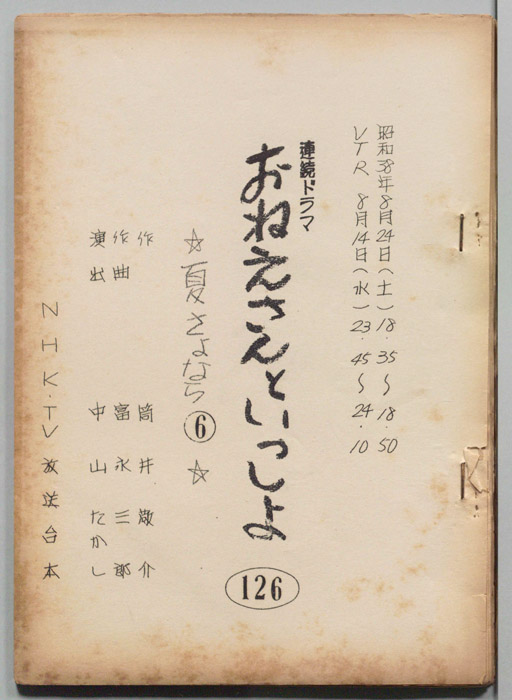 昭和38年8月24日（土）18.35〜18.50
VTR 8月14日（水）23.45〜24.10
連続ドラマ
おねえさんといっしょ
126
☆夏さよなら⑥☆
作 筒井敬介
作曲 富永三郎
演出 中山たかし
NHK・TV放送台本